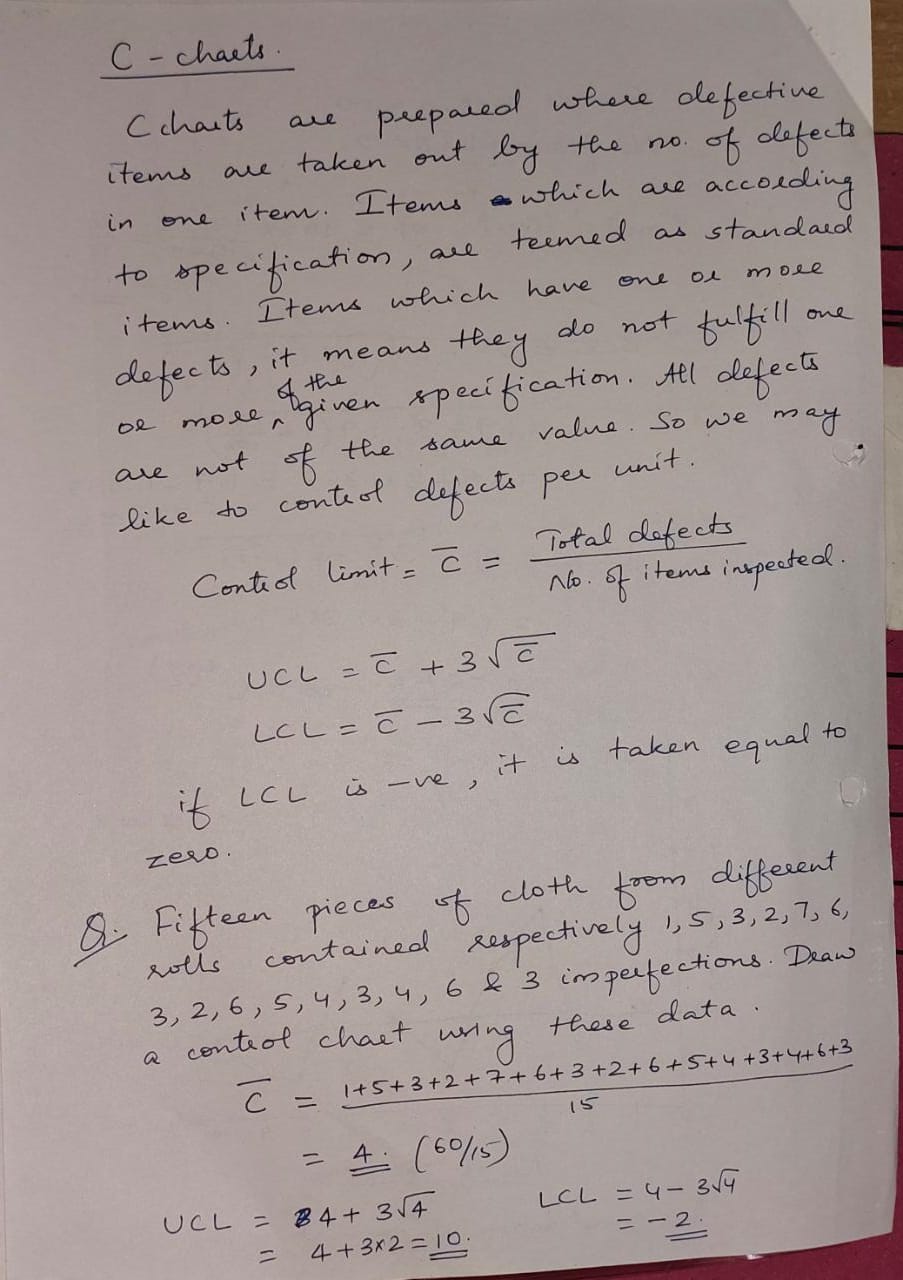 C - charts.
C charts are prepared where defective
items are taken out by the no. of defects
in one item. Items which are according
to specification, are termed as standard
items. Items which have one or more
defects, it means they do not fulfill one
or more of the given specification. All defects
are not of the same value. So we may
like to control defects per unit.
Control limit = c̅ = Total defects / No. of items inspected.
UCL = c̅ + 3√c̅
LCL = c̅ - 3√c̅
if LCL is -ve, it is taken equal to
zero.
Q. Fifteen pieces of cloth from different
rolls contained respectively 1, 5, 3, 2, 7, 6,
3, 2, 6, 5, 4, 3, 4, 6 & 3 imperfections. Draw
a control chart using these data.
c̅ = 1+5+3+2+7+6+3+2+6+5+4+3+4+6+3 / 15
= 4. (60/15)
UCL = 4 + 3√4 LCL = 4 - 3√4
= 4 + 3x2 = 10. = -2.